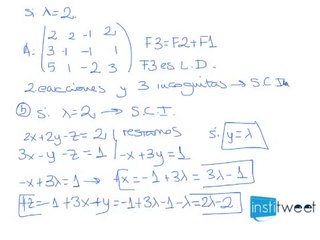 Si λ=2.
2 2 -1 2
A: 3 -1 -1 1 F3=F2+F1
5 1 -2 3 F3 es L.D.
2 ecuaciones y 3 incognitas → S.C.I.
b) Si λ=2 → S.C.I.
2x+2y-z=2 | restamos Si y=λ
3x-y-z=1 | -x+3y=1
-x+3λ=1 → x=-1+3λ = 3λ-1
z=-1+3x-y=-1+9λ-1-λ=2λ-2
institweet